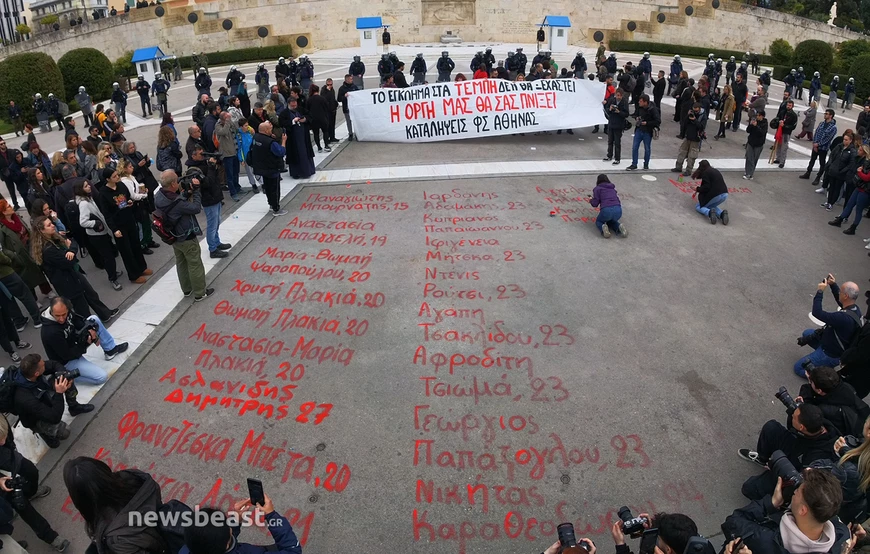 ΤΟ ΕΓΚΛΗΜΑ ΣΤΑ ΤΕΜΠΗ ΔΕΝ ΘΑ ΞΕΧΑΣΤΕΙ
Η ΟΡΓΗ ΜΑΣ ΘΑ ΣΑΣ ΠΝΙΞΕΙ
ΚΑΤΑΛΗΨΕΙΣ ΦΣ ΑΘΗΝΑΣ
Παναγιώτης
Μπουρνάζης, 15
Αναστασία
Παπαγγελή, 19
Μαρία-Θωμαή
Ψαροπούλου, 20
Χρυσή Πλακιά, 20
Θωμαή Πλακιά, 20
Αναστασία-Μαρία
Πλακιά, 20
Ασλανίδης
Δημήτρης 27
Φραντζέσκα Μπέζα, 20
Ιορδάνης
Αδαμάκης
Κυπριανός
Παπαιωάννου, 23
Ιφιγένεια
Μήτσκα, 23
Ντενις
Ρούτσι, 23
Αγάπη
Τσακλίδου, 23
Αφροδίτη
Τσιωμά, 23
Γεώργιος
Παπάζογλου, 23
Νικήτας
Καραθεοδώρου
newsbeast.gr